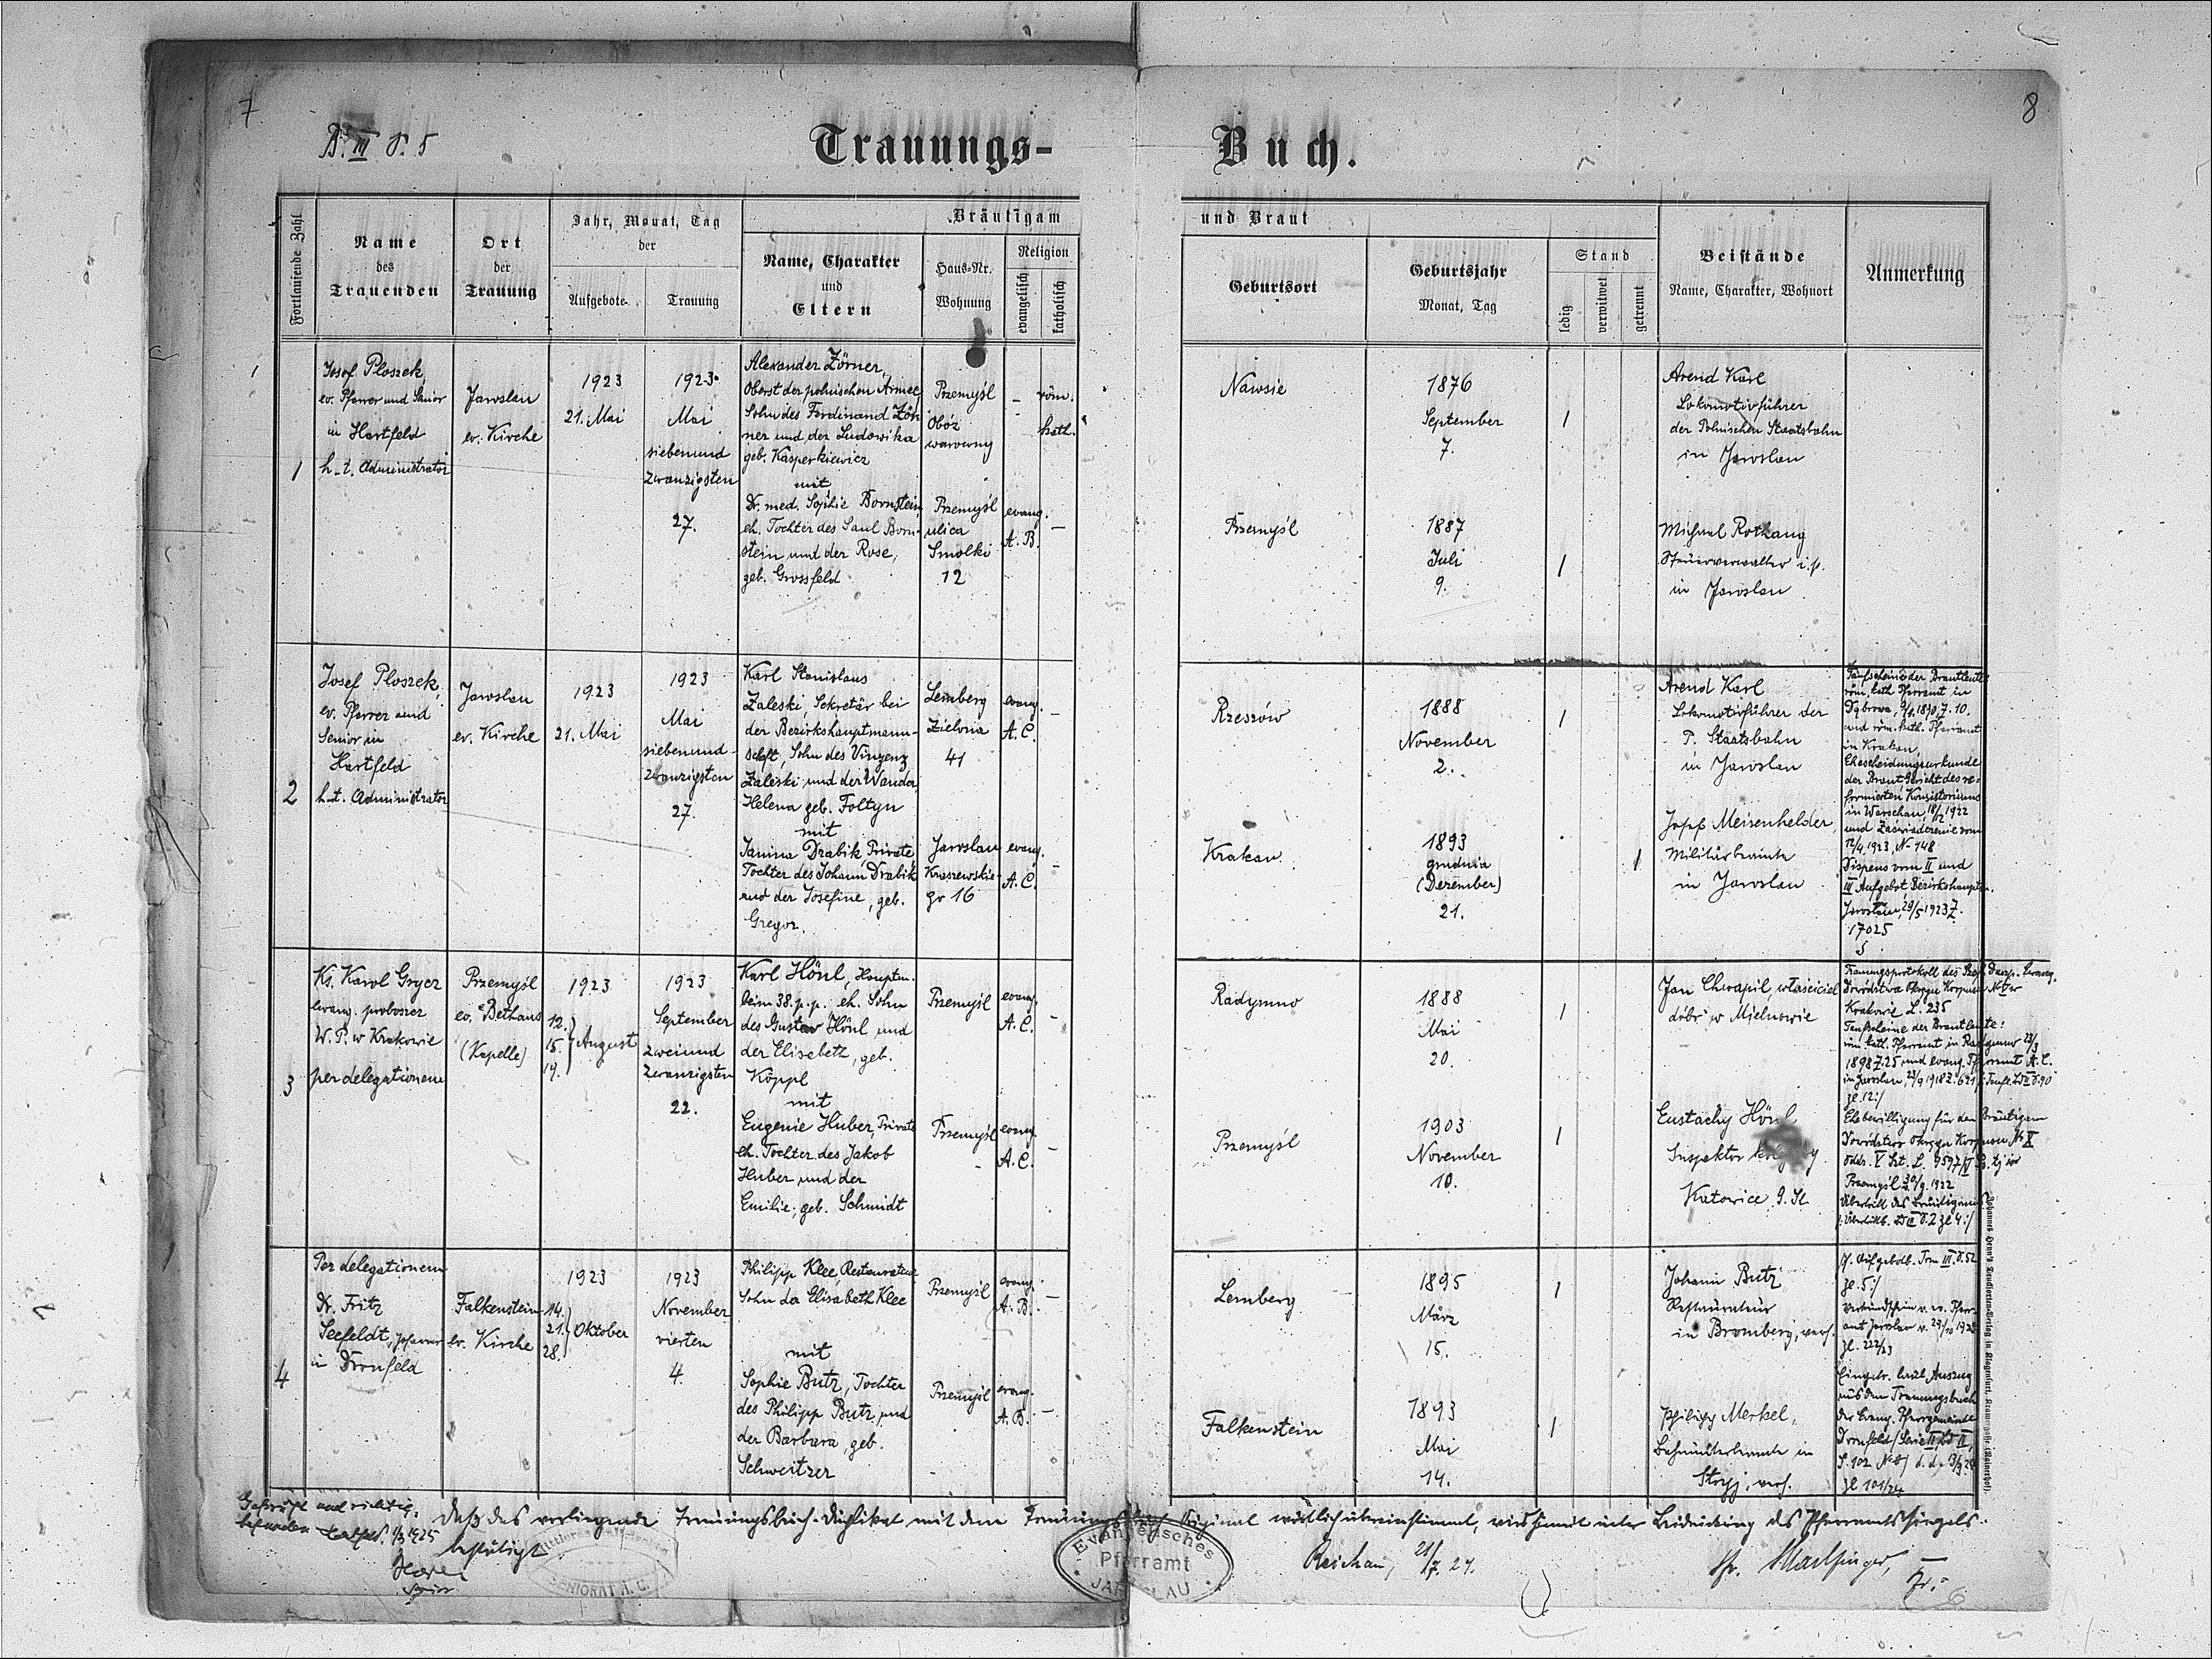 7
8
B. III S. 5
Trauungs-
Buch.
Fortlaufende Zahl
Name
des
Trauenden
Ort
der
Trauung
Jahr, Monat, Tag
der
Aufgebote
Trauung
Bräutigam
und Braut
Name, Charakter
und
Eltern
Haus-Nr.
Wohnung
Religion
evangelisch
katholisch
Geburtsort
Geburtsjahr
Monat, Tag
Stand
ledig
verwitwet
getrennt
Beistände
Name, Charakter, Wohnort
Anmerkung
1
Josef Ploszek,
ev. Pfarrer und Senior
in Hartfeld
h. t. Administrator
Jaroslau
ev. Kirche
1923
21. Mai
1923
Mai
siebenund
zwanzigsten
27.
Alexander Zörner,
Oberst der polnischen Armee
Sohn des Ferdinand Zör
ner und der Ludowika
geb. Kasperkiewicz
mit
Dr. med. Sophie Bornstein
eh. Tochter des Saul Born-
stein und der Rose,
geb. Grossfeld
Przemyśl
Obóz
warowny
Przemyśl
ulica
Smolki
12
röm.
kath.
evang.
A. B.
Nawsie
1876
September
7.
1
Przemyśl
1887
Juli
9.
1
Arend Karl
Lokomotivführer
der Polnischen Staatsbahn
in Jaroslau
Michael Rothaug
Steuerverwalter i. p.
in Jaroslau
2
Josef Ploszek,
ev. Pfarrer und
Senior in
Hartfeld
h. t. Administrator
Jaroslau
ev. Kirche
1923
21. Mai
1923
Mai
siebenund-
zwanzigsten
27.
Karl Stanislaus
Zaleski Sekretär bei
der Bezirkshauptmann-
schaft, Sohn des Vinzenz
Zaleski und der Wanda
Helena geb. Foltyn
mit
Janina Drabik, Private,
Tochter des Johann Drabik
und der Josefine, geb.
Gregor.
Lemberg
Zielona
41
Jaroslau
Kraszewskie-
go 16
evang.
A. C.
evang.
A. C.
Rzeszów
1888
November
2.
1
Krakau
1893
grudnia
(Dezember)
21.
1
Arend Karl
Lokomotivführer der
P. Staatsbahn
in Jaroslau
Josef Meisenhelder,
Militärbeamte
in Jaroslau
Taufscheine der Brautleute
röm. kath. Pfarramt in
und röm. kath. Pfarramt
in Krakau,
Ehescheidungsurkunde
der Braut Gericht des re-
formierten Konsistoriums
in Warschau,
und Zaświadczenie vom
12/4. 1923, № 148
Dispens vom II und
III Aufgebot Bezirkshauptm.
Jaroslau, 29/5 1923 Z.
17025
5
3
Ks. Karol Grycz
ewang. proboszcz
W. P. w Krakowie
per delegationem
Przemyśl
ev. Bethaus
(Kapelle)
1923
12.
15.
19.
August
1923
September
zweiund
zwanzigsten
22.
Karl Hönl, Hauptm.
beim 38. p. p. eh. Sohn
des Gustav Hönl und
der Elisabeth, geb.
Köppl
mit
Eugenie Huber, Private
eh. Tochter des Jakob
Huber und der
Emilie, geb. Schmidt
Przemyśl
Przemyśl
evang.
A. C.
evang.
A. C.
Radymno
1888
Mai
20.
1
Przemyśl
1903
November
10.
1
Jan Chrapil, właściciel
dóbr w Mielnowie
Eustachy Hönl
Inspektor
Katowice G. Sl.
Krakowie L. 235
Taufscheine der Brautleute:
röm. kath. Pfarramt in Radymno
1898 Z. 25 und evang. Pfarramt A. C.
Ehebewilligung für den Bräutigam
Przemyśl 30/9. 1922
Übertritt des Bräutigams
4
Per delegationem
Dr. Fritz
Seefeldt, Pfarrer
in Dornfeld
Falkenstein
ev. Kirche
1923
14.
21.
28.
Oktober
1923
November
vierten
4.
Philipp Klee, Restaurateur
Sohn der Elisabeth Klee
mit
Sophie Butz, Tochter
des Philipp Butz und
der Barbara, geb.
Schweitzer
Przemyśl
Przemyśl
evang.
A. B.
evang.
A. B.
Lemberg
1895
März
15.
1
Falkenstein
1893
Mai
14.
1
Johann Butz
Restaurateur
in Bromberg, verh.
Philipp Merkel,
Bahnunterbeamte in
Stryj, verh.
Zl. 5:/
Zl. 222/23
Eingetr. laut Auszug
aus dem Trauungsbuch
der Evang. Pfarrgemeinde
Dornfeld
Zl 101/24
Geprüft und richtig
befunden
Daß das vorliegende Trauungsbuch-Duplikat mit dem Trauungsbuch Original wörtlich übereinstimmt, wird hiemit unter Beidrückung des Pfarramtssiegels
bestätigt
SENIORAT A. C.
Evangelisches
Pfarramt
JAROSLAU
Reichau, 21/7. 24.